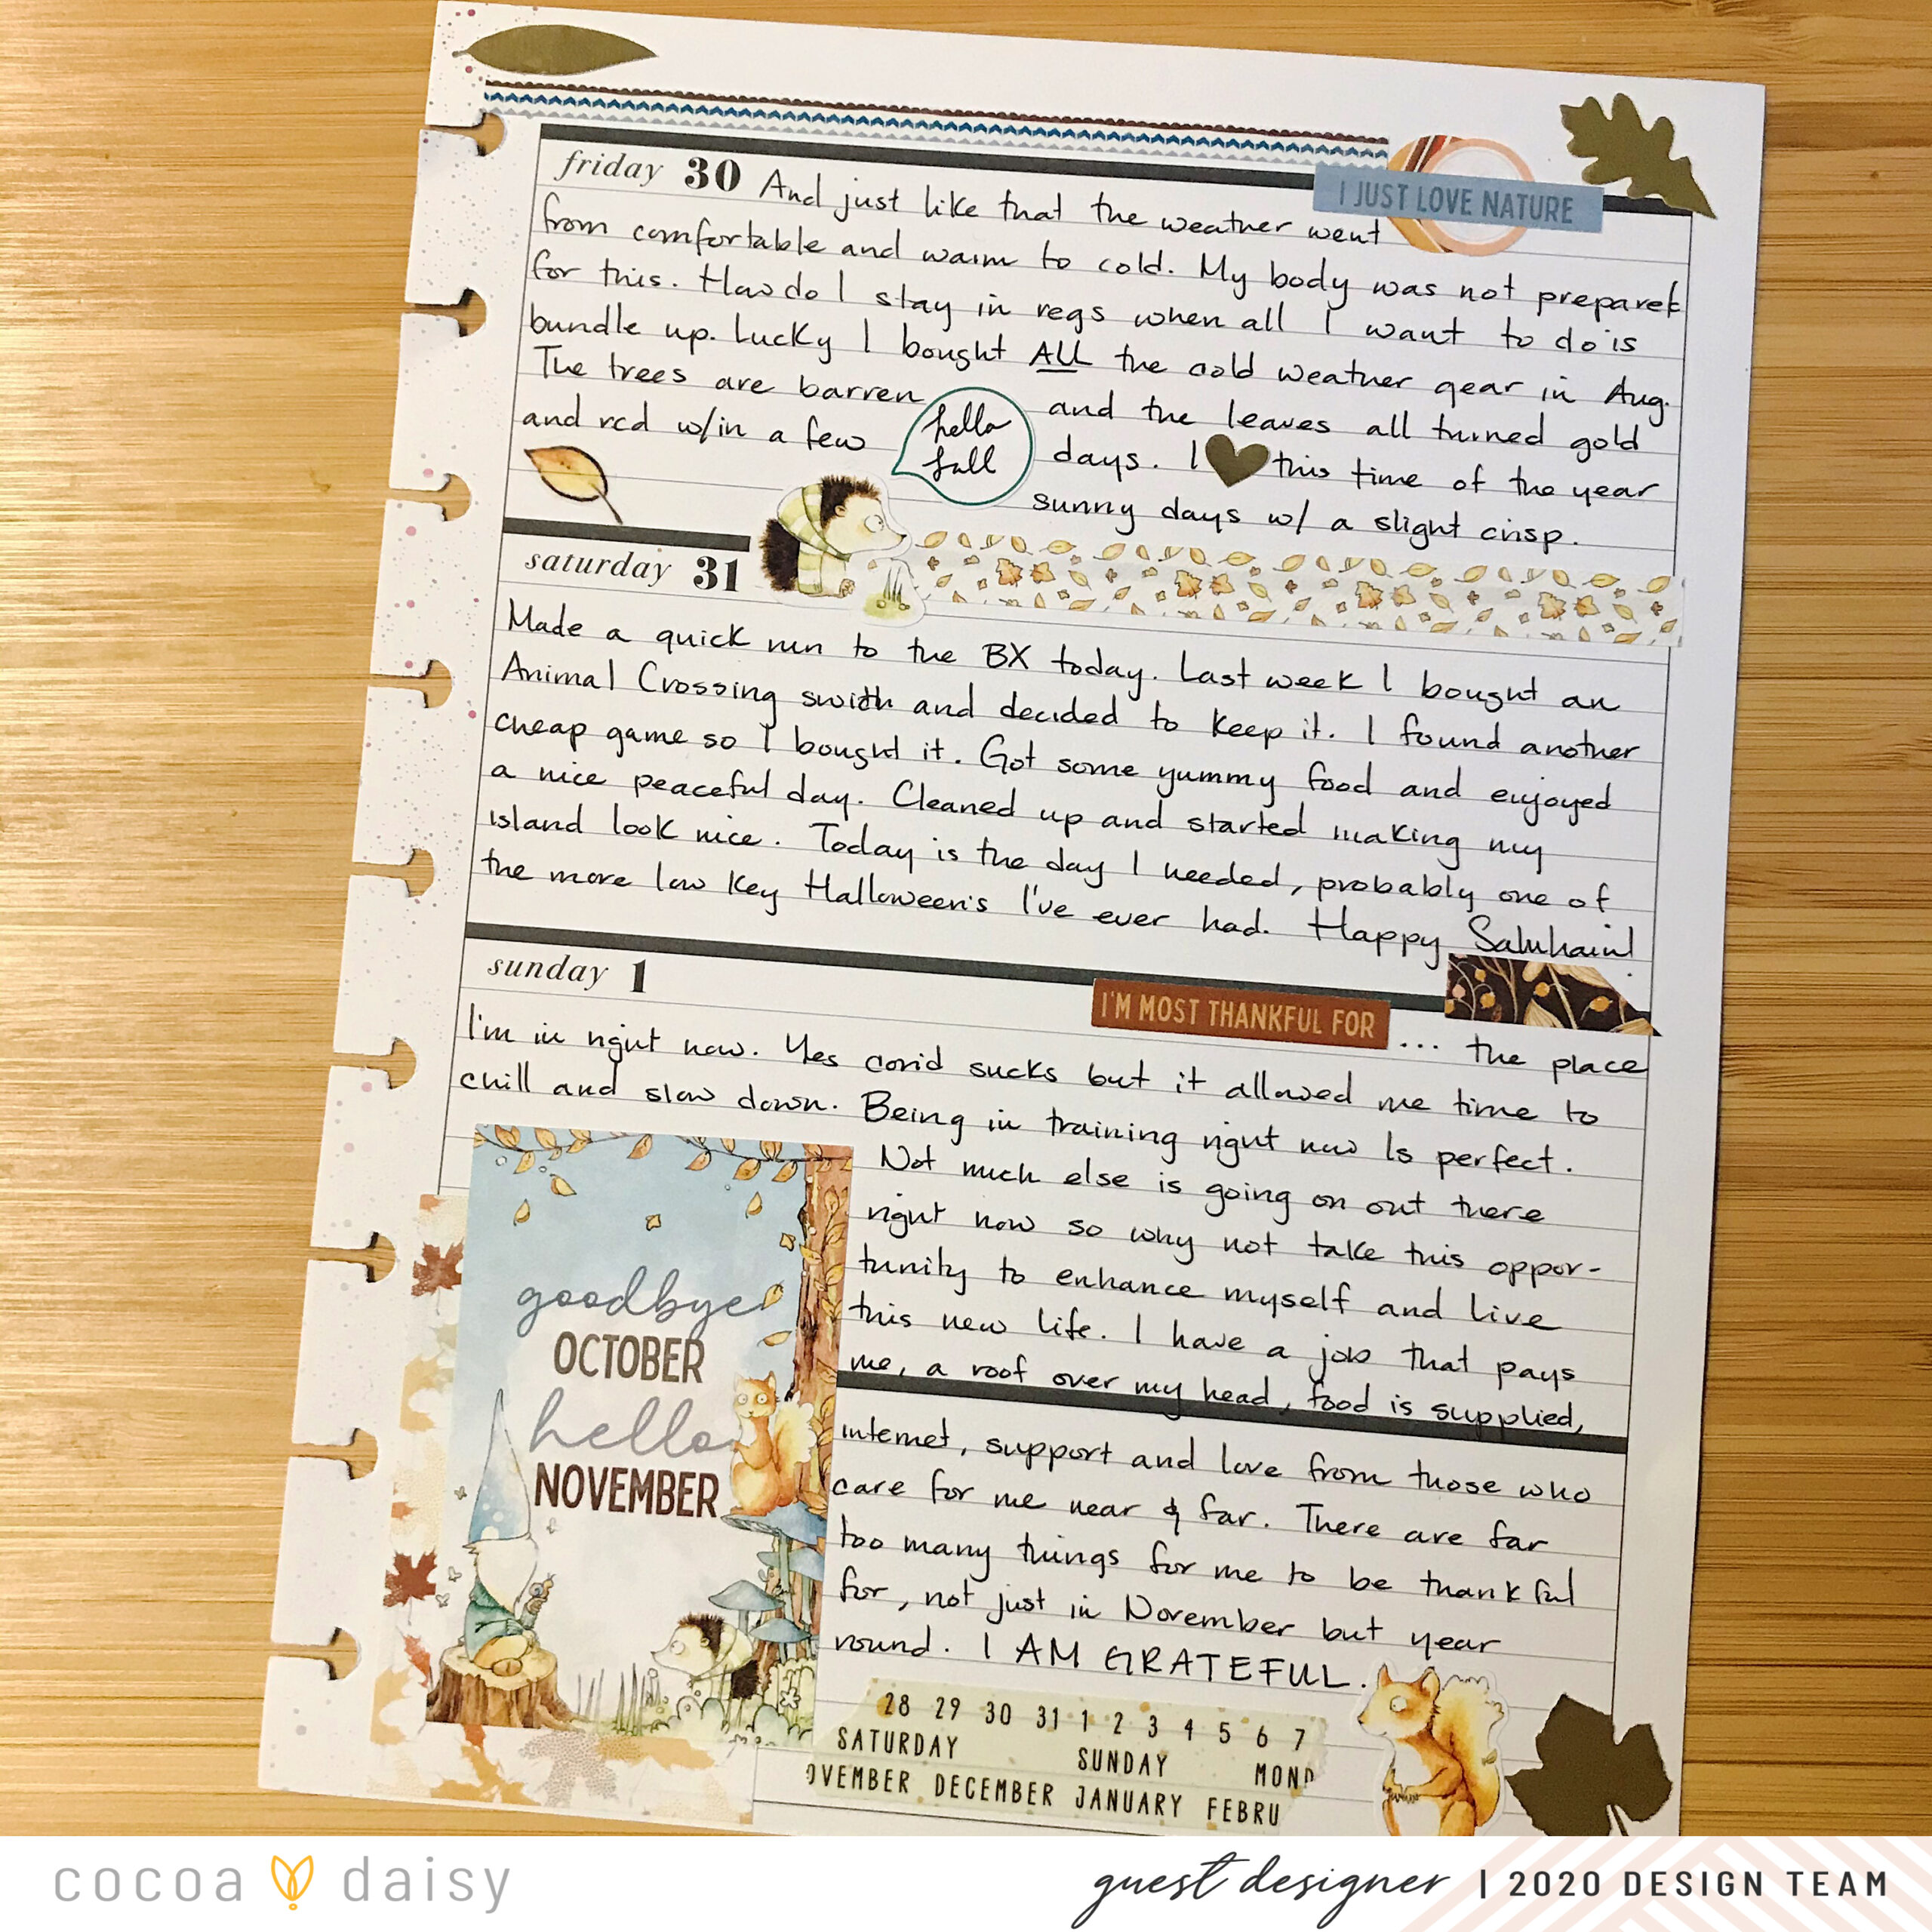 friday 30 And just like that the weather went
I JUST LOVE NATURE
from comfortable and warm to cold. My body was not prepared
for this. How do I stay in regs when all I want to do is
bundle up. Lucky I bought ALL the cold weather gear in Aug.
The trees are barren and the leaves all turned gold
and red w/in a few days. I this time of the year
hello
fall
sunny days w/ a slight crisp.
saturday 31
Made a quick run to the BX today. Last week I bought an
Animal Crossing swith and decided to keep it. I found another
cheap game so I bought it. Got some yummy food and enjoyed
a nice peaceful day. Cleaned up and started making my
island look nice. Today is the day I needed, probably one of
the more low key Halloween's I've ever had. Happy Samhain!
sunday 1
I'M MOST THANKFUL FOR ... the place
I'm in right now. Yes covid sucks but it allowed me time to
chill and slow down. Being in training right now Is perfect.
Not much else is going on out there
right now so why not take this oppor-
tunity to enhance myself and live
this new life. I have a job that pays
me, a roof over my head, food is supplied,
internet, support and love from those who
care for me near & far. There are far
too many things for me to be thankful
for, not just in November but year
round. I AM GRATEFUL.
goodbye
OCTOBER
hello
NOVEMBER
28 29 30 31 1 2 3 4 5 6 7
SATURDAY SUNDAY MOND
OVEMBER DECEMBER JANUARY FEBRU
cocoa daisy
guest designer | 2020 DESIGN TEAM